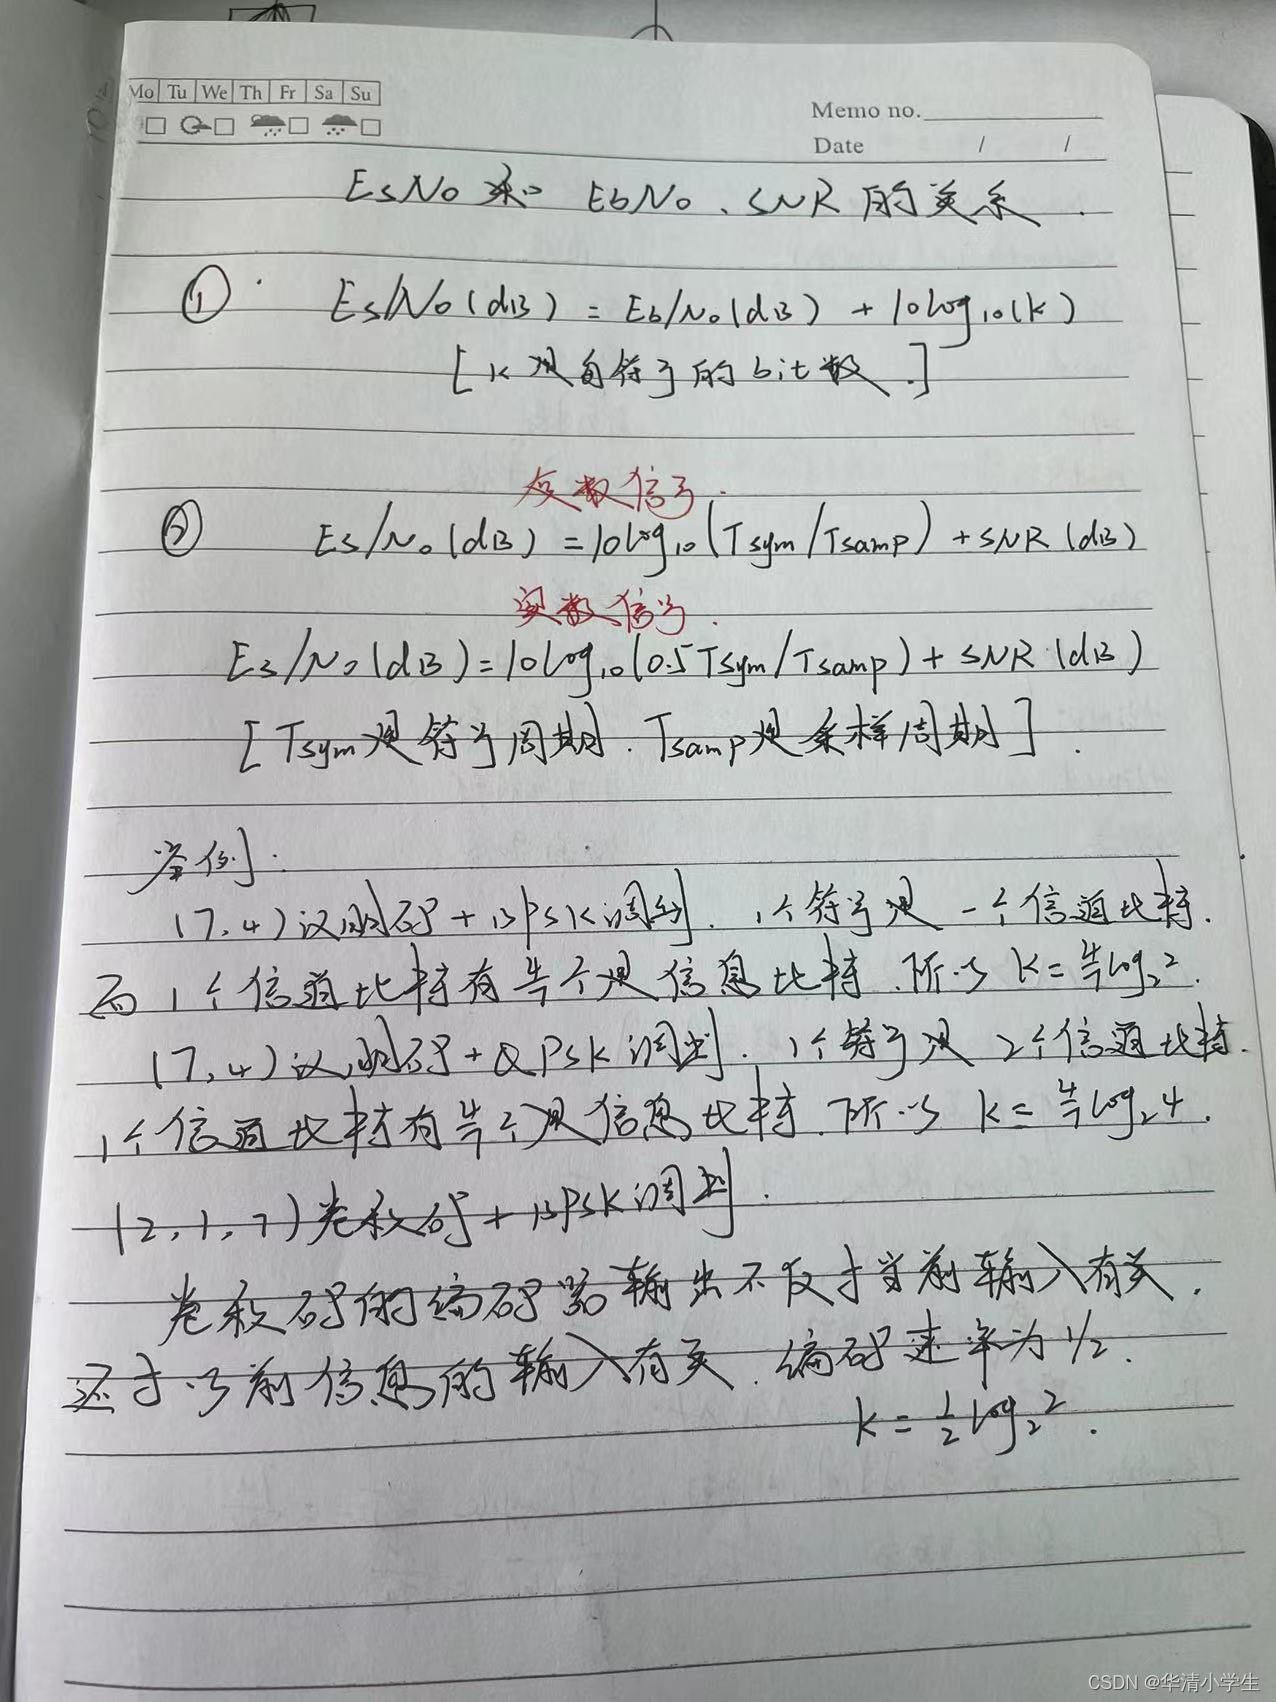 Mo Tu We Th Fr Sa Su
Memo no.
Date / /
EsNo和EbNo、SNR的关系.
① Es/No(dB) = Eb/No(dB) + 10log10(k)
[k是每符号的bit数.]
复数信号.
② Es/No(dB) = 10log10(Tsym/Tsamp) + SNR(dB)
实数信号.
Es/No(dB) = 10log10(0.5Tsym/Tsamp) + SNR(dB)
[Tsym是符号周期. Tsamp是采样周期].
举例:
(7,4)汉明码+BPSK调制. 1个符号是一个信道比特.
而1个信道比特有4/7个是信息比特.所以 k=4/7log₂2.
(7,4)汉明码+QPSK调制. 1个符号是2个信道比特.
1个信道比特有4/7个是信息比特.所以 k=4/7log₂4.
(2,1,7)卷积码+BPSK调制.
卷积码的编码器输出不仅于当前输入有关.
还于以前信息的输入有关.编码速率为1/2.
k=1/2log₂2.
CSDN @华清小学生